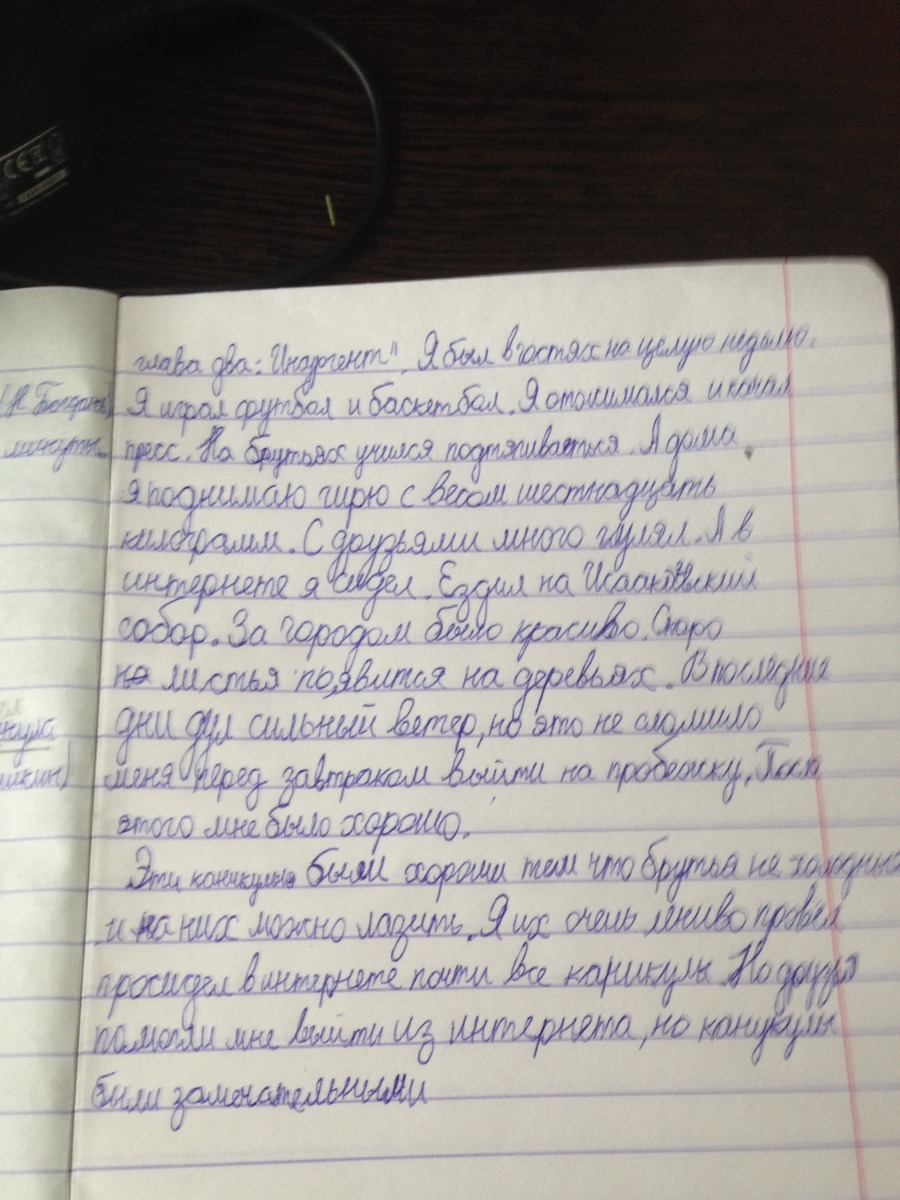 глава два: Инсургент". Я был в гостях на целую неделю.
Я играл футбол и баскетбол. Я отжимался и качал
пресс. На брутьях учился подтягиваеться. А дома
я поднимаю гирю с весом шестнадцать
килограмм. С друзьями много гулял. А в
интернете я сидел. Ездил на Исаакиевский
собор. За городом было красиво. Скоро
на листья появится на деревьях. В последние
дни дул сильный ветер, но это не сломило
меня перед завтраком выйти на пробежку. После
этого мне было хорошо.
Эти каникулы были хороши тем что брутья не холодные
и на них можно лазить. Я их очень лениво провёл
просидел в интернете почти все каникулы. Но друзья
помогли мне выйти из интернета, но каникулы
были замечательными
(М. Богданов)
минуты